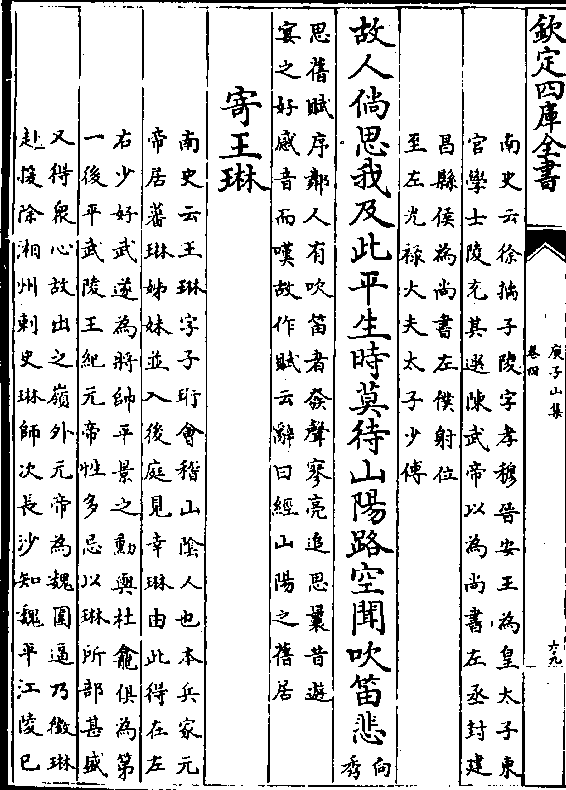 欽定四庫全書
庾子山集
卷四
六九
南史云徐摛子陵字孝穆晉安王為皇太子東
官學士陵充其選陳武帝以為尚書左丞封建
昌縣侯為尚書左僕射位
至左光禄大夫太子少傅
故人倘思我及此平生時莫待山陽路空聞吹笛悲向
秀
思舊賦序鄰人有吹笛者發聲寥亮追思曩昔遊
宴之好感音而嘆故作賦云辭曰經山陽之舊居
寄王琳
南史云王琳字子珩會稽山隂人也本兵家元
帝居蕃琳姊妹並入後庭見幸琳由此得在左
右少好武遂為將帥平景之勳與杜龕俱為第
一後平武陵王紀元帝性多忌以琳所部甚盛
又得衆心故出之嶺外元帝為魏圍逼乃徵琳
赴援除湘州刺史琳師次長沙知魏平江陵已